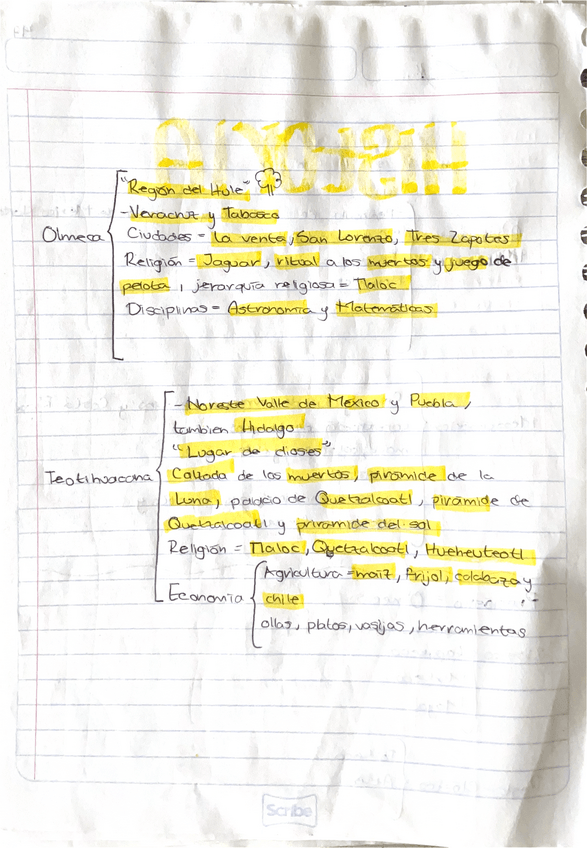 "Región del Hule"
-Veracruz y Tabasco
Olmeca
Ciudades = La venta, San Lorenzo, Tres Zapotes
Religión = Jaguar, ritual a los muertos y juego de
pelota, jerarquía religiosa = Tlaloc
Disciplinas = Astronomía y Matemáticas
- Noreste Valle de México y Puebla,
tambien Hidalgo
"Lugar de dioses"
Teotihuacana
Calzada de los muertos, pirámide de la
Luna, palacio de Quetzalcoatl, pirámide de
Quetzalcoatl y priramide del sol
Religión = Tlaloc, Quetzalcoatl, Hueheuteotl
Economía
Agricultura = maíz, frijol, calabaza y
chile
ollas, platos, vasijas, herramientas
Scribe